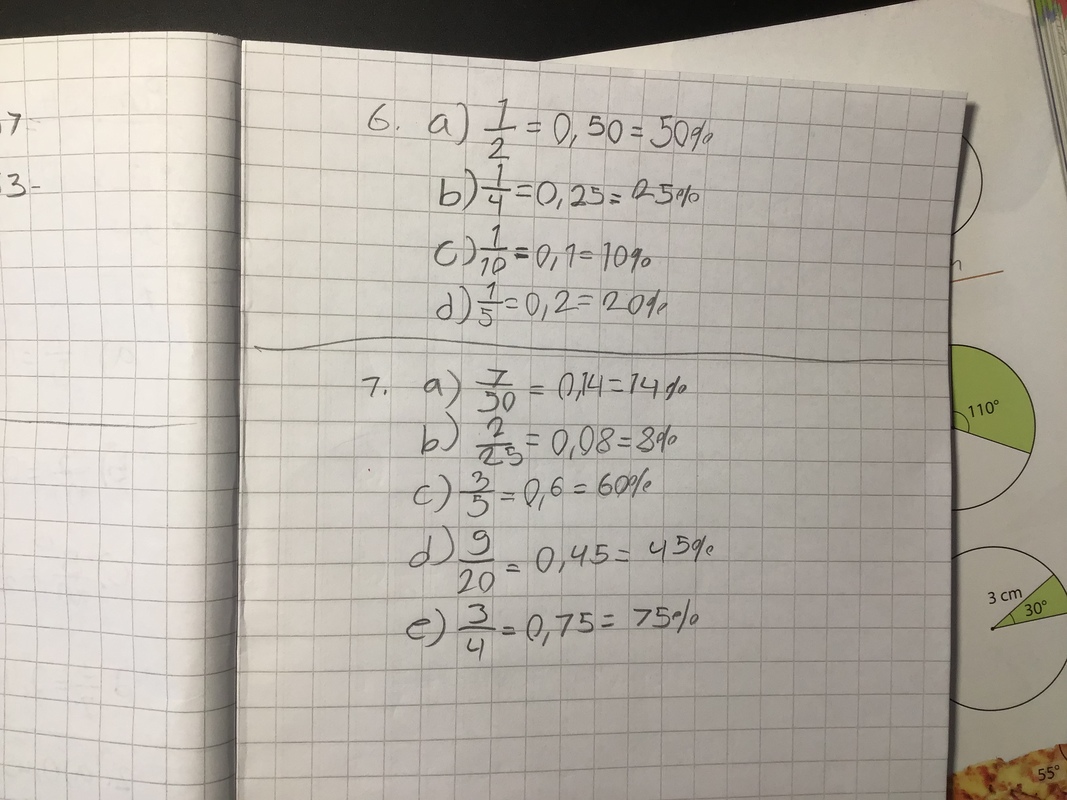 17
13-
6. a) 1/2 = 0,50 = 50%
b) 1/4 = 0,25 = 25%
c) 1/10 = 0,1 = 10%
d) 1/5 = 0,2 = 20%
7. a) 7/50 = 0,14 = 14%
b) 2/25 = 0,08 = 8%
c) 3/5 = 0,6 = 60%
d) 9/20 = 0,45 = 45%
e) 3/4 = 0,75 = 75%
110°
3 cm
30°
55°